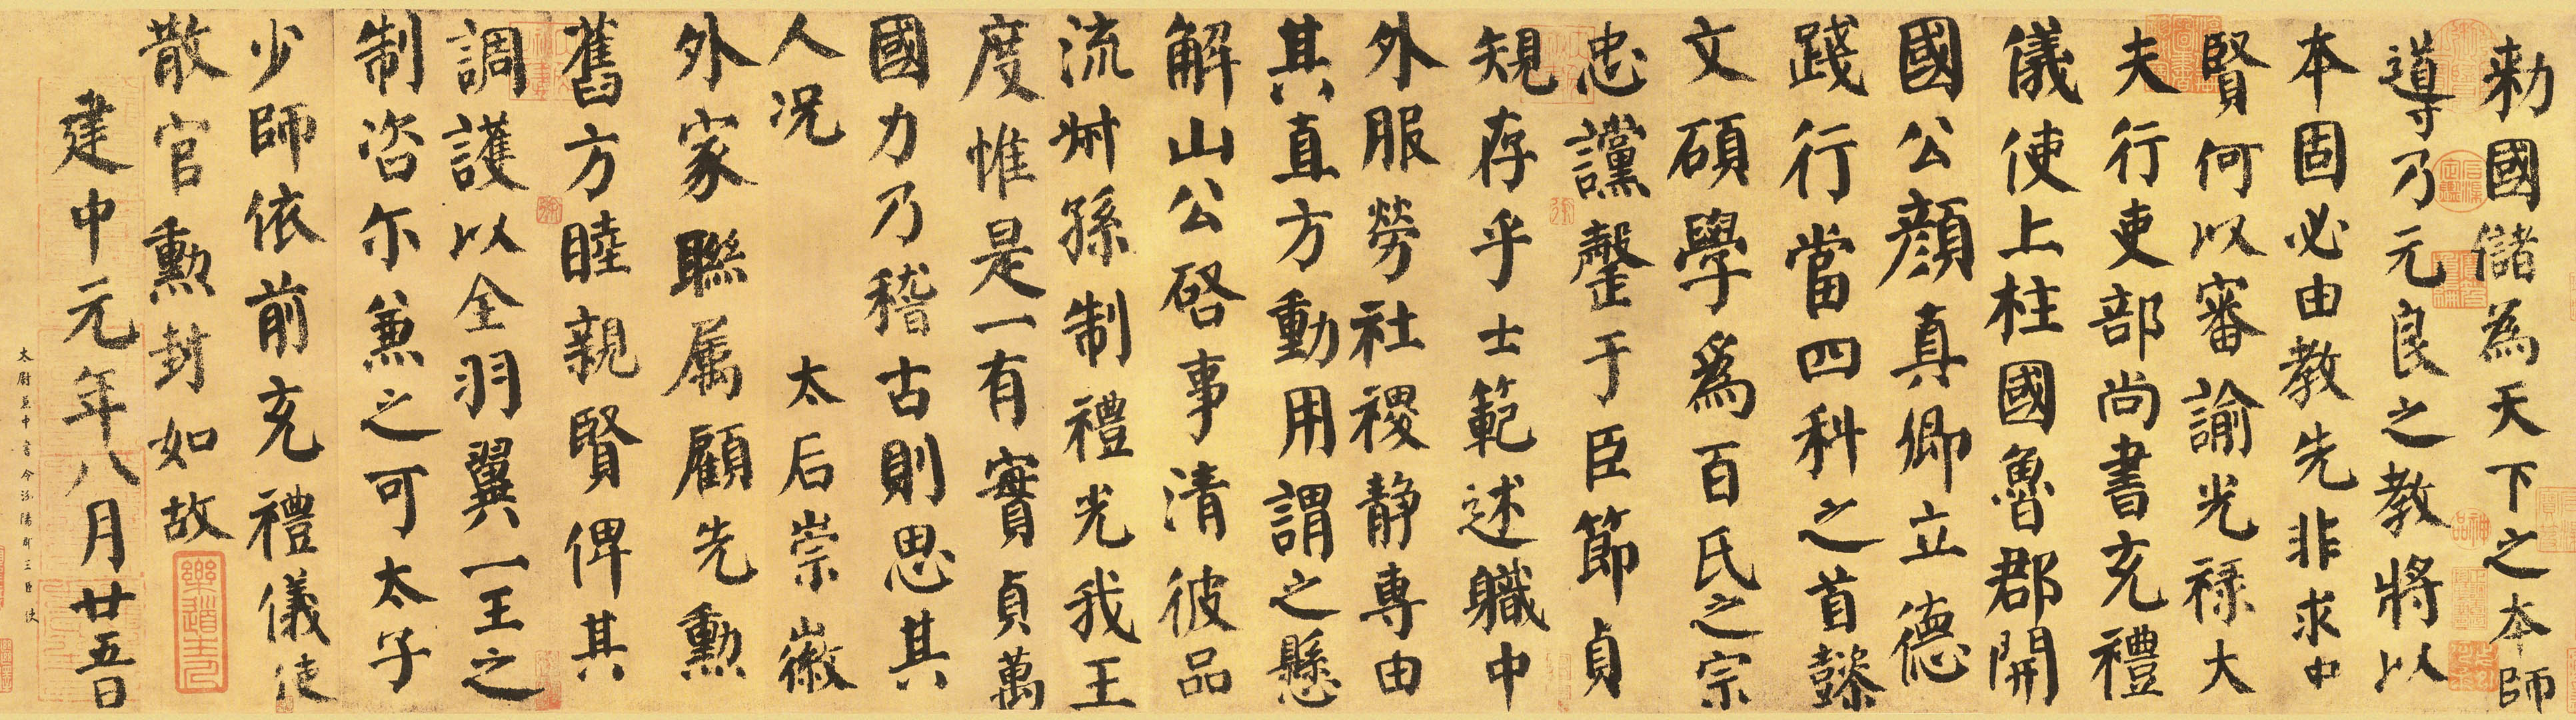 勅國儲為天下之本師
導乃元良之教將以
本固必由教先非求中
賢何以審諭光祿大
夫行吏部尚書充禮
儀使上柱國魯郡開
國公顏真卿立德
踐行當四科之首懿
文碩學爲百氏之宗
忠讜罄于臣節貞
規存乎士範述職中
外服勞社稷静專由
其直方動用謂之懸
解山公啓事清彼品
流叔孫制禮光我王
度惟是一有實貞萬
國力乃稽古則思其
人況 太后崇徽
外家聯属顧先勳
舊方睦親賢俾其
調護以全羽翼一王之
制咨尓兼之可太子
少師依前充禮儀使
散官勳封如故
建中元年八月廿五日
太尉兼中書令汾陽郡王臣使
樂道主人